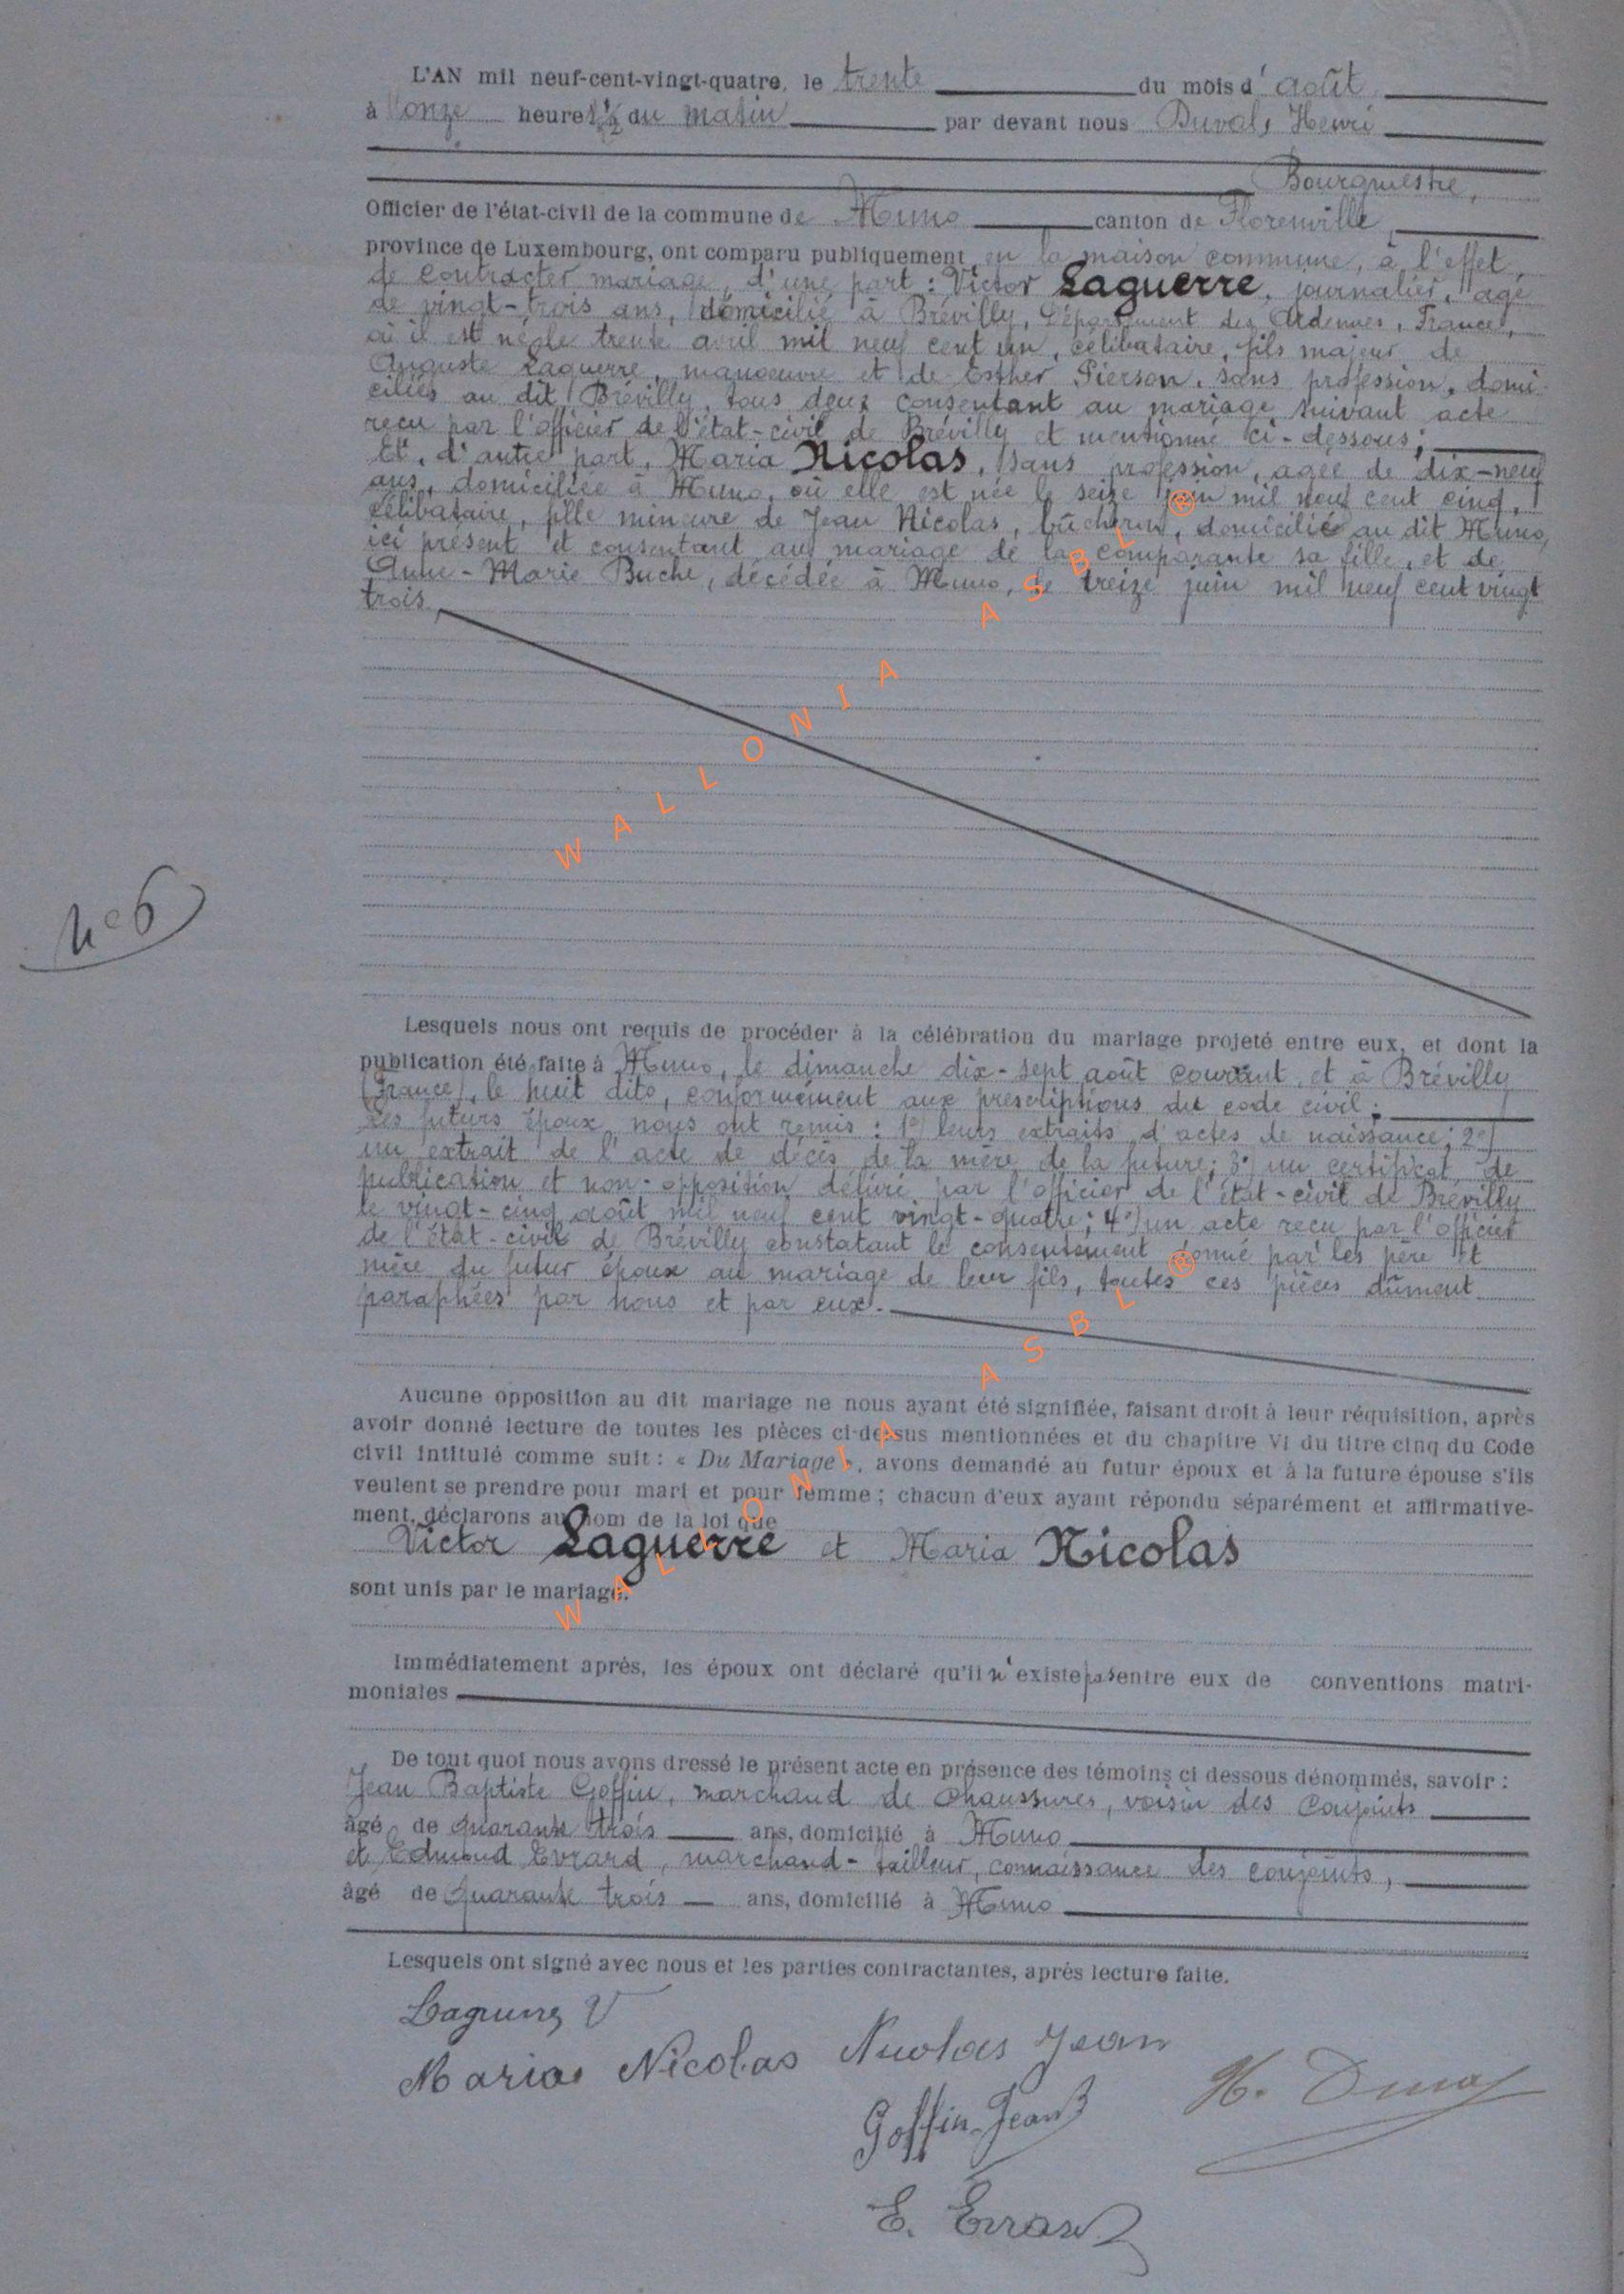 L'AN mil neuf-cent-vingt-quatre, le trente du mois d'août
à onze heures ½ du matin par devant nous Duval, Henri
Bourgmestre,
Officier de l'état-civil de la commune de Muno canton de Florenville,
province de Luxembourg, ont comparu publiquement en la maison commune, à l'effet
de contracter mariage, d'une part : Victor Laguerre, journalier, agé
de vingt-trois ans, domicilié à Brévilly, Département des Ardennes, France,
où il est né le trente avril mil neuf cent un, célibataire, fils majeur de
Auguste Laguerre, manœuvre et de Esther Pierson, sans profession, domi-
ciliés au dit Brévilly, tous deux consentant au mariage suivant acte
reçu par l'officier de l'état-civil de Brévilly et mentionné ci-dessous;
Et, d'autre part, Maria Nicolas, sans profession, agée de dix-neuf
ans, domiciliée à Muno, où elle est née le seize juin mil neuf cent cinq,
célibataire, fille mineure de Jean Nicolas, bûcheron, domicilié au dit Muno,
ici présent et consentant au mariage de la comparante sa fille, et de
Anne-Marie Buche, décédée à Muno, le treize juin mil neuf cent vingt
trois.
n° 6
Lesquels nous ont requis de procéder à la célébration du mariage projeté entre eux, et dont la
publication été faite à Muno, le dimanche dix-sept août courant, et à Brévilly
(France), le huit dito, conformément aux prescriptions du code civil;
Les futurs époux nous ont remis : 1°) leurs extraits d'actes de naissance; 2°)
un extrait de l'acte de décès de la mère de la future; 3°) un certificat de
publication et non-opposition délivré par l'officier de l'état-civil de Brévilly
le vingt-cinq août mil neuf cent vingt-quatre; 4°) un acte reçu par l'officier
de l'état-civil de Brévilly constatant le consentement donné par les père et
mère du futur époux au mariage de leur fils, toutes ces pièces dûment
paraphées par nous et par eux.
Aucune opposition au dit mariage ne nous ayant été signifiée, faisant droit à leur réquisition, après
avoir donné lecture de toutes les pièces ci-dessus mentionnées et du chapitre VI du titre cinq du Code
civil intitulé comme suit : « Du Mariage », avons demandé au futur époux et à la future épouse s'ils
veulent se prendre pour mari et pour femme ; chacun d'eux ayant répondu séparément et affirmative-
ment, déclarons au nom de la loi que
Victor Laguerre et Maria Nicolas
sont unis par le mariage.
Immédiatement après, les époux ont déclaré qu'il n'existe pas entre eux de conventions matri-
moniales
De tout quoi nous avons dressé le présent acte en présence des témoins ci dessous dénommés, savoir :
Jean Baptiste Goffin, marchand de chaussures, voisin des conjoints
âgé de quarante trois ans, domicilié à Muno
et Edmond Evrard, marchand-tailleur, connaissance des conjoints,
âgé de quarante trois ans, domicilié à Muno
Lesquels ont signé avec nous et les parties contractantes, après lecture faite.
Laguerre V
Maria Nicolas Nicolas Jean
H. Duval
Goffin Jean B
E. Evrard
WALLONIA ASBL ®
WALLONIA ASBL ®